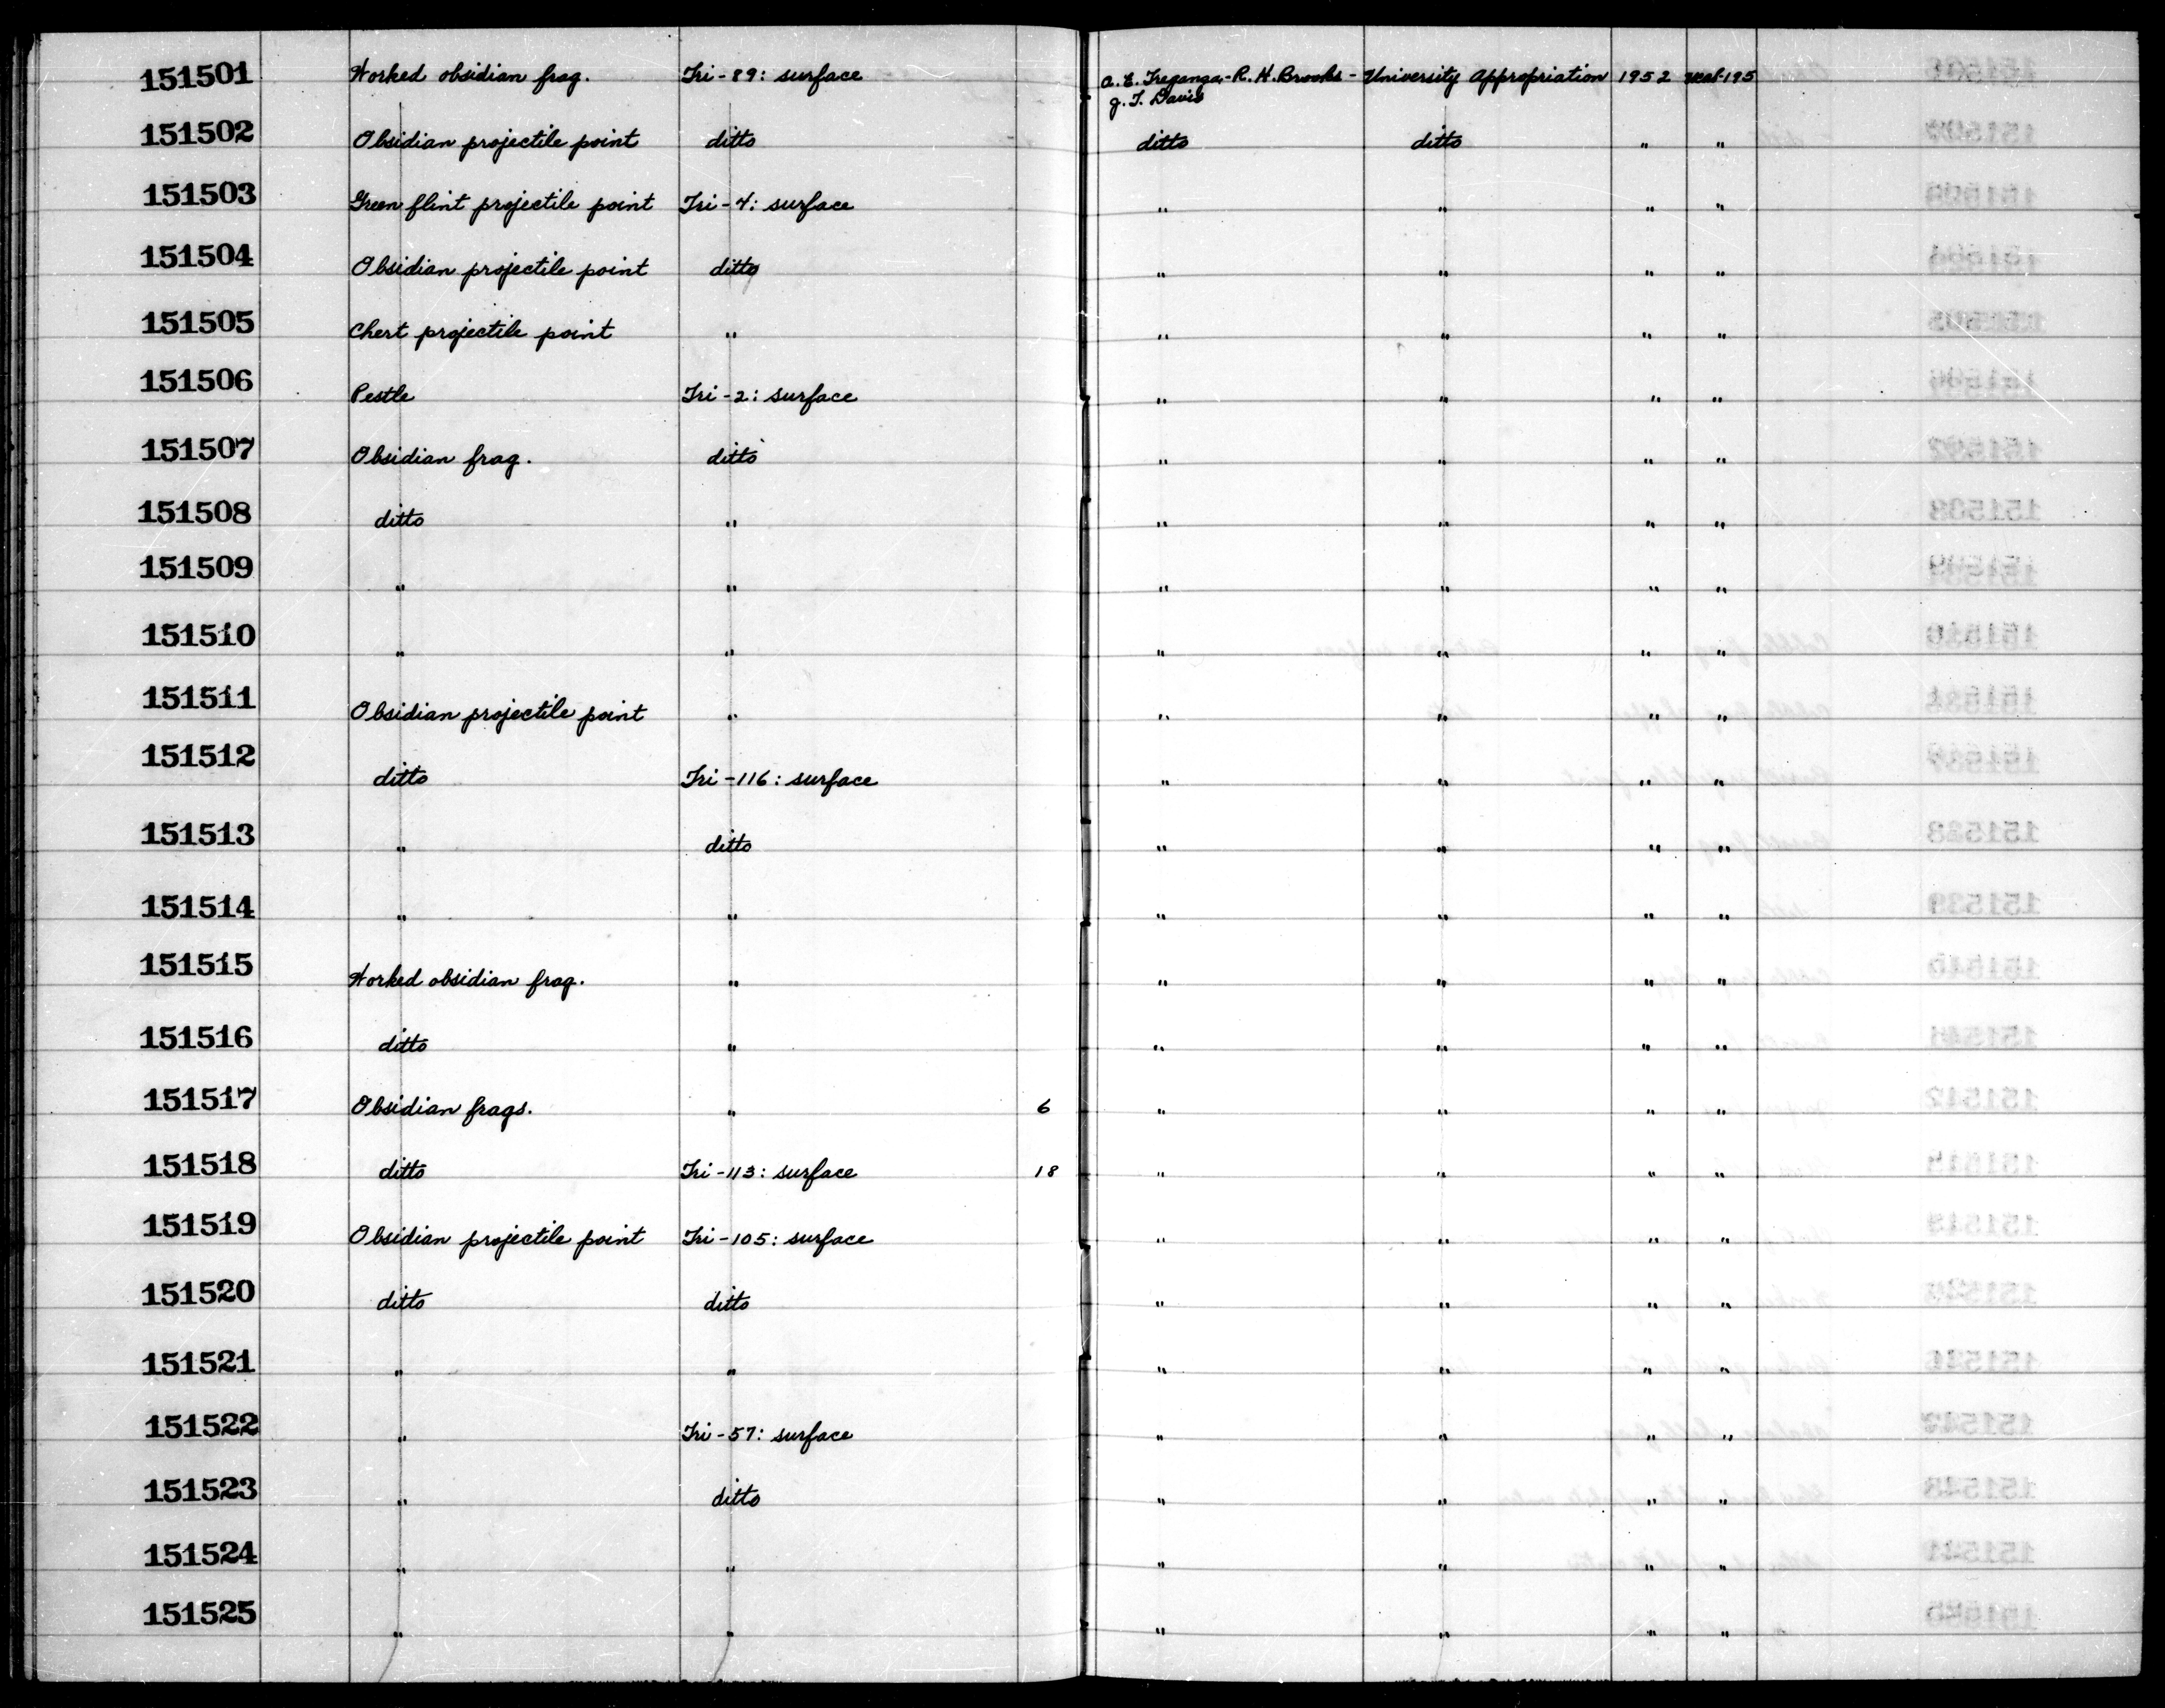 151501 Worked obsidian frag. Tri-89: surface A.E. Treganza-R.H. Brooks- University Appropriation 1952
G.T. Davis
151502 Obsidian projectile point ditto ditto ditto " "
151503 Green flint projectile point Tri-4: surface " " " "
151504 Obsidian projectile point ditto " " " "
151505 Chert projectile point " " " " "
151506 Pestle Tri-2: surface " " " "
151507 Obsidian frag. ditto " " " "
151508 ditto " " " " "
151509 " " " " " "
151510 " " " " " "
151511 Obsidian projectile point " " " " "
151512 ditto Tri-116: surface " " " "
151513 " ditto " " " "
151514 " " " " " "
151515 Worked obsidian frag. " " " " "
151516 ditto " " " " "
151517 Obsidian frags. " 6 " " " "
151518 ditto Tri-113: surface 18 " " " "
151519 Obsidian projectile point Tri-105: surface " " " "
151520 ditto ditto " " " "
151521 " " " " " "
151522 " Tri-57: surface " " " "
151523 " ditto " " " "
151524 " " " " " "
151525 " " " " " "